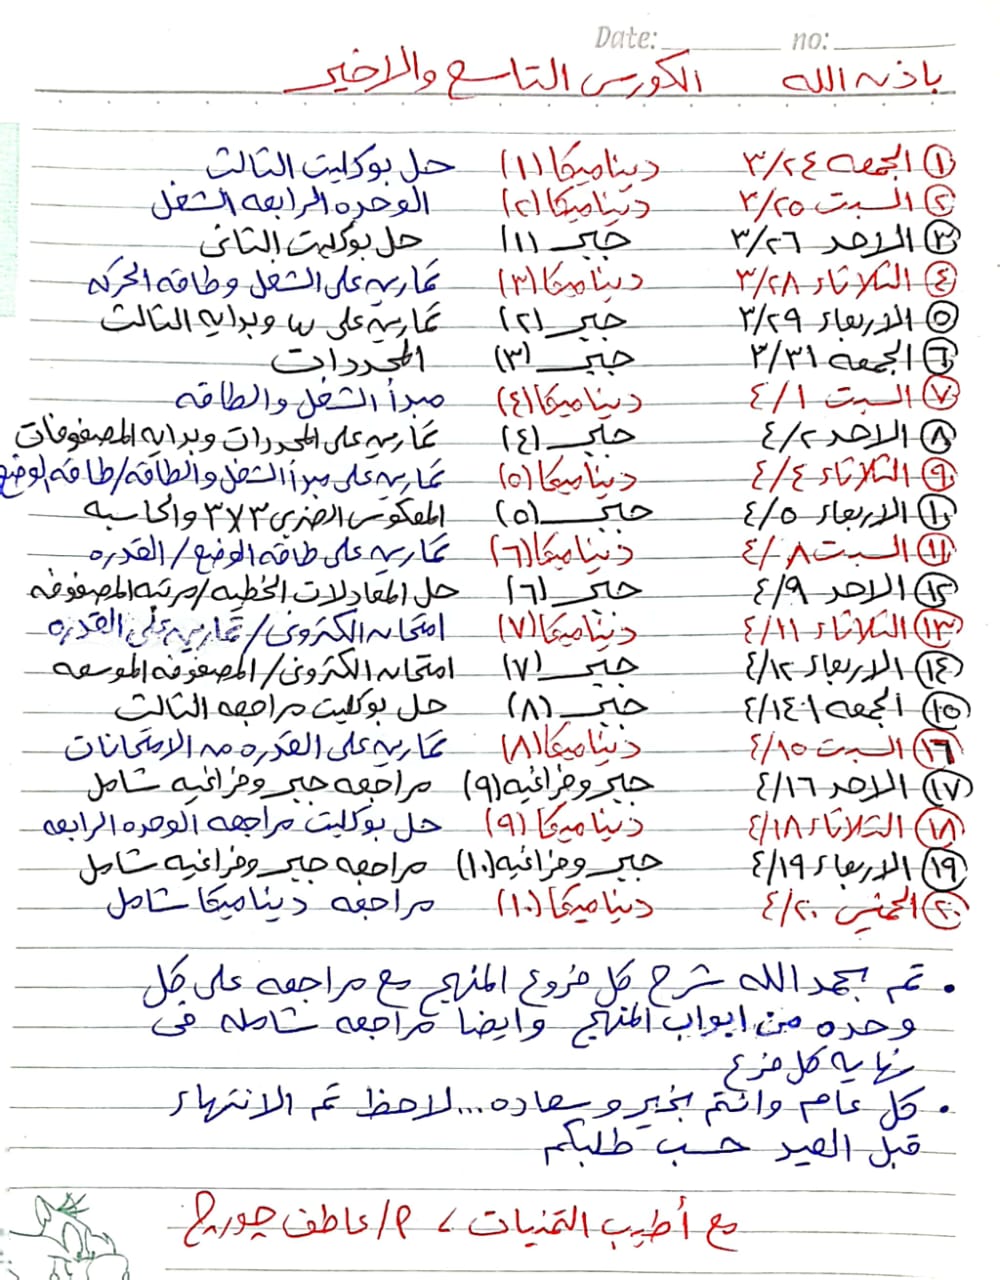 Date: no:
باذن الله الكورس التاسع والاخير
١ الجمعه ٣/٢٤ ديناميكا (١) حل بوكليت الثالث
٢ السبت ٣/٢٥ ديناميكا (٢) الوحده الرابعه الشغل
٣ الاحد ٣/٢٦ جبر (١) حل بوكليت الثانى
٤ الثلاثاء ٣/٢٨ ديناميكا (٣) تمارين على الشغل وطاقه الحركه
٥ الاربعاء ٣/٢٩ جبر (٢) تمارين على ω وبدايه الثالث
٦ الجمعه ٣/٣١ جبر (٣) المحددات
٧ السبت ٤/١ ديناميكا (٤) مبدأ الشغل والطاقه
٨ الاحد ٤/٢ جبر (٤) تمارين على المحددات وبدايه المصفوفات
٩ الثلاثاء ٤/٤ ديناميكا (٥) تمارين على مبدأ الشغل والطاقه/طاقه الوضع
١٠ الاربعاء ٤/٥ جبر (٥) المعكوس الضربى ٣×٣ والحاسبه
١١ السبت ٤/٨ ديناميكا (٦) تمارين على طاقه الوضع/القدره
١٢ الاحد ٤/٩ جبر (٦) حل المعادلات الخطيه/مرتبه المصفوفه
١٣ الثلاثاء ٤/١١ ديناميكا (٧) امتحان الكترونى/تمارين على القدره
١٤ الاربعاء ٤/١٢ جبر (٧) امتحان الكترونى/المصفوفه الموسعه
١٥ الجمعه ٤/١٤ جبر (٨) حل بوكليت مراجعه الثالث
١٦ السبت ٤/١٥ ديناميكا (٨) تمارين على القدره من الامتحانات
١٧ الاحد ٤/١٦ جبر وفراغيه (٩) مراجعه جبر وفراغيه شامل
١٨ الثلاثاء ٤/١٨ ديناميكا (٩) حل بوكليت مراجعه الوحده الرابعه
١٩ الاربعاء ٤/١٩ جبر وفراغيه (١٠) مراجعه جبر وفراغيه شامل
٢٠ الخميس ٤/٢٠ ديناميكا (١٠) مراجعه ديناميكا شامل
• تم بحمد الله شرح كل فروع المنهج مع مراجعه على كل
وحده من ابواب المنهج وايضا مراجعه شامله فى
نهايه كل فرع
• كل عام وانتم بخير وسعاده... لاحظ تم الانتهاء
قبل العيد حسب طلبكم
مع أطيب التمنيات ، م/عاطف جورج